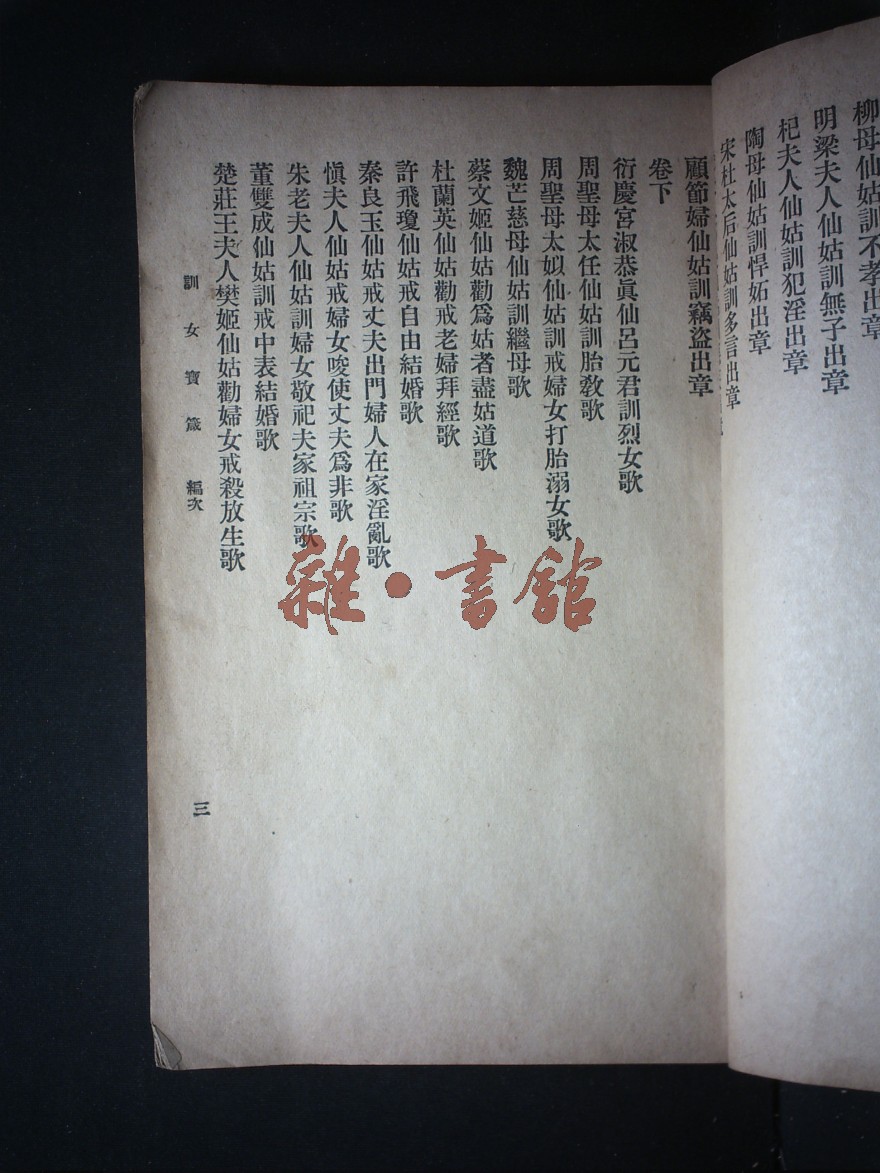 柳母仙姑訓不孝出章
明梁夫人仙姑訓無子出章
杞夫人仙姑訓犯淫出章
陶母仙姑訓悍妬出章
宋杜太后仙姑訓多言出章
顧節婦仙姑訓竊盜出章
卷下
衍慶宮淑恭眞仙呂元君訓烈女歌
周聖母太任仙姑訓胎敎歌
周聖母太姒仙姑訓戒婦女打胎溺女歌
魏芒慈母仙姑訓繼母歌
蔡文姬仙姑勸爲姑者盡姑道歌
杜蘭英仙姑勸戒老婦拜經歌
許飛瓊仙姑戒自由結婚歌
秦良玉仙姑戒丈夫出門婦人在家淫亂歌
愼夫人仙姑戒婦女唆使丈夫爲非歌
朱老夫人仙姑訓婦女敬祀夫家祖宗歌
董雙成仙姑訓戒中表結婚歌
楚莊王夫人樊姬仙姑勸婦女戒殺放生歌
訓女寶箴 編次
三
雜·書館